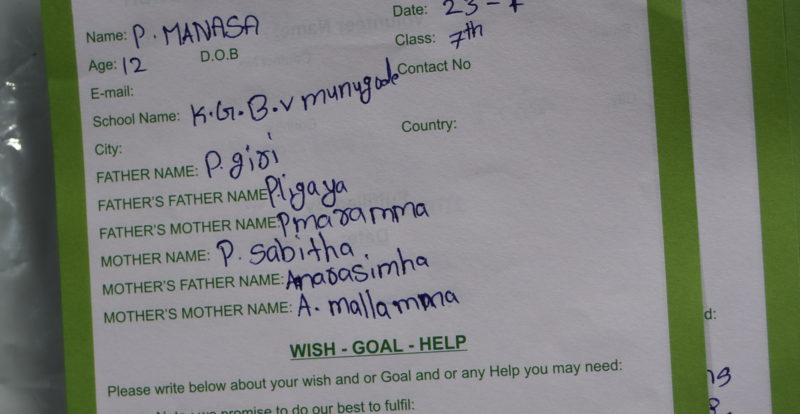 Date: 23-7
Name: P. MANASA
Class: 7th
Age: 12 D.O.B
Contact No
E-mail:
School Name: K.G.B.V munugode
City: Country:
FATHER NAME: P. giri
FATHER'S FATHER NAME: P.ligaya
FATHER'S MOTHER NAME: P maramma
MOTHER NAME: P. Sabitha
MOTHER'S FATHER NAME: A narasimha
MOTHER'S MOTHER NAME: A. mallamma
WISH - GOAL - HELP
Please write below about your wish and or Goal and or any Help you may need:
we promise to do our best to fulfil:
d: